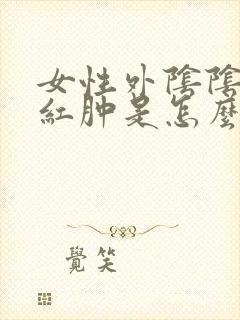 女性外陰陰
紅肿是怎麼
覺笑